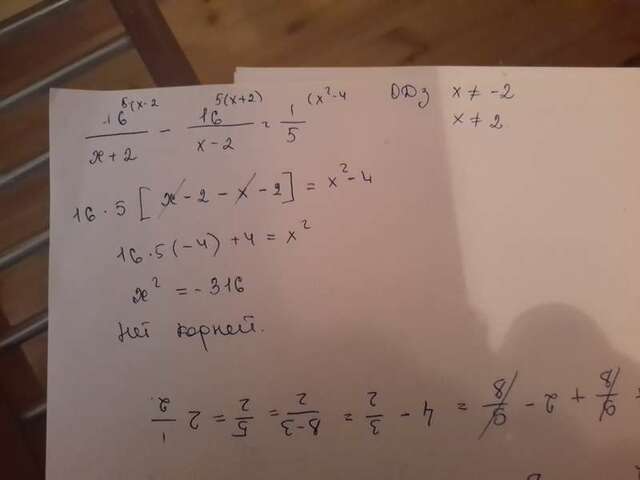 16^{5(x-2} / x+2 - 16^{5(x+2)} / x-2 = 1/5 ^{(x²-4} ОДЗ x ≠ -2
x ≠ 2
16 · 5 [x - 2 - x - 2] = x² - 4
16 · 5 (-4) + 4 = x²
x² = - 316
Нет корней.
9/8 + 2 - 9/8 = 4 - 3/2 = 8-3/2 = 5/2 = 2 1/2